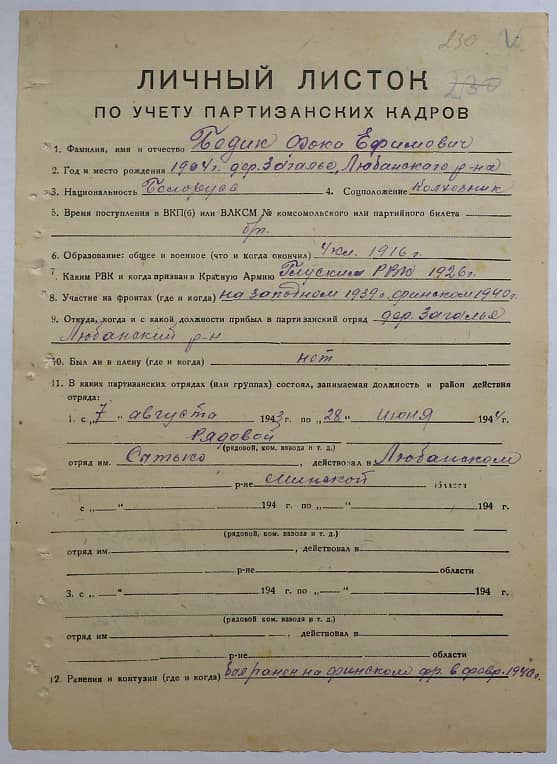 230
ЛИЧНЫЙ ЛИСТОК
230
ПО УЧЕТУ ПАРТИЗАНСКИХ КАДРОВ
1. Фамилия, имя и отчество Бедик Фока Ефимович
2. Год и место рождения 1904 г. дер. Загалье, Любанского р-на
3. Национальность Белорусс 4. Соцположение Колхозник
5. Время поступления в ВКП(б) или ВЛКСМ № комсомольского или партийного билета
б/п.
6. Образование: общее и военное (что и когда окончил) 4 кл. 1916 г.
7. Каким РВК и когда призван в Красную Армию Глуским РВК 1926 г.
8. Участие на фронтах (где и когда) на западном 1939 г. финском 1940 г.
9. Откуда, когда и с какой должности прибыл в партизанский отряд дер. Загалье
Любанский р-н
10. Был ли в плену (где и когда) нет
11. В каких партизанских отрядах (или группах) состоял, занимаемая должность и район действия
отряда:
1. с „7 " августа 1943 г. по „28 " июня 1944 г.
Рядовой
(рядовой, ком. взвода и т. д.)
отряд им. , действовал в Любанском
р-не Минской области
с „—" 194 г. по „—" 194 г.
(рядовой, ком. взвода и т. д.)
отряд им. , действовал в
р-не области
3. с „—" 194 г. по „—" 194 г.
(рядовой, ком. взвода и т. д.)
отряд им , действовал в
р-не области
12. Ранения и контузии (где и когда) был ранен на финском фр. в февр. 1940 г.